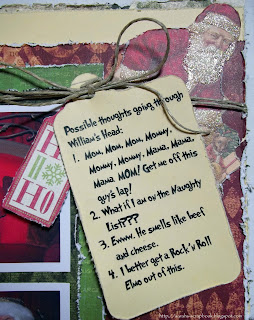 Possible thoughts going through
William's Head:
1. Mom, Mom, Mom, Mommy,
Mommy, Mommy, Mama, Mama,
Mama. MOM! Get me off this
guy's lap!
2. What if I am on the Naughty
List???
3. Ewww. He smells like beef
and cheese.
4. I better get a Rock'n'Roll
Elmo out of this.
HO
HO